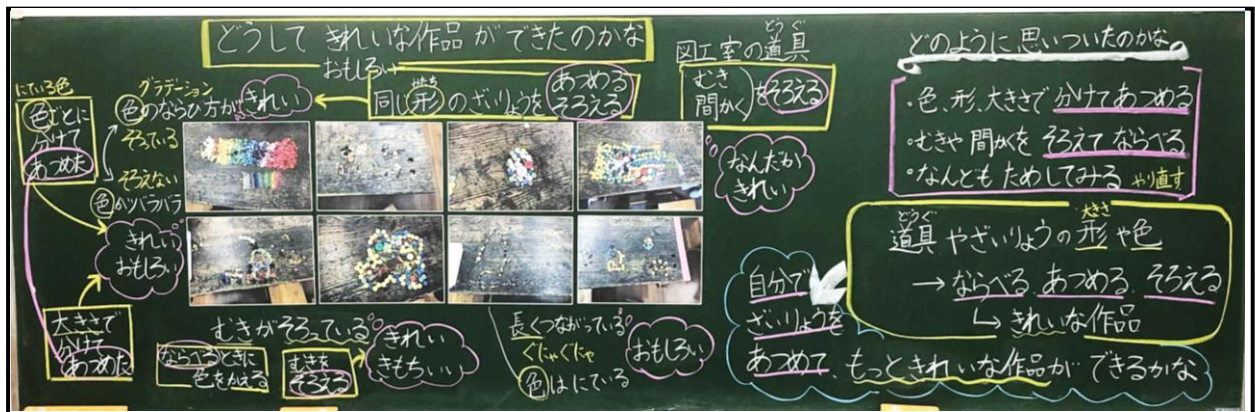 どうして きれいな作品 ができたのかな
おもしろい
にている色
色ごとに
分けて
あつめた
グラデーション
色のならび方が
きれい
そろっている
そろえない
色がバラバラ
きれい
おもしろい
大きさで
分けて
あつめた
かたち
同じ形のざいりょうを
あつめる
そろえる
どうぐ
図工室の道具
むき
間かく
をそろえる
なんだか
きれい
むきがそろっている
ならべるときに
色をかえる
むきを
そろえる
きれい
きもちいい
長くつながっている
ぐにゃぐにゃ
色はにている
おもしろい
どのように思いついたのかな
・色、形、大きさで 分けてあつめる
・むきや間かくを そろえてならべる
・なんどもためしてみる やり直す
どうぐ
大きさ
道具やざいりょうの形や色
→ならべる、あつめる、そろえる
↳きれいな作品
自分で
ざいりょうを
あつめて、もっときれいな作品ができるかな